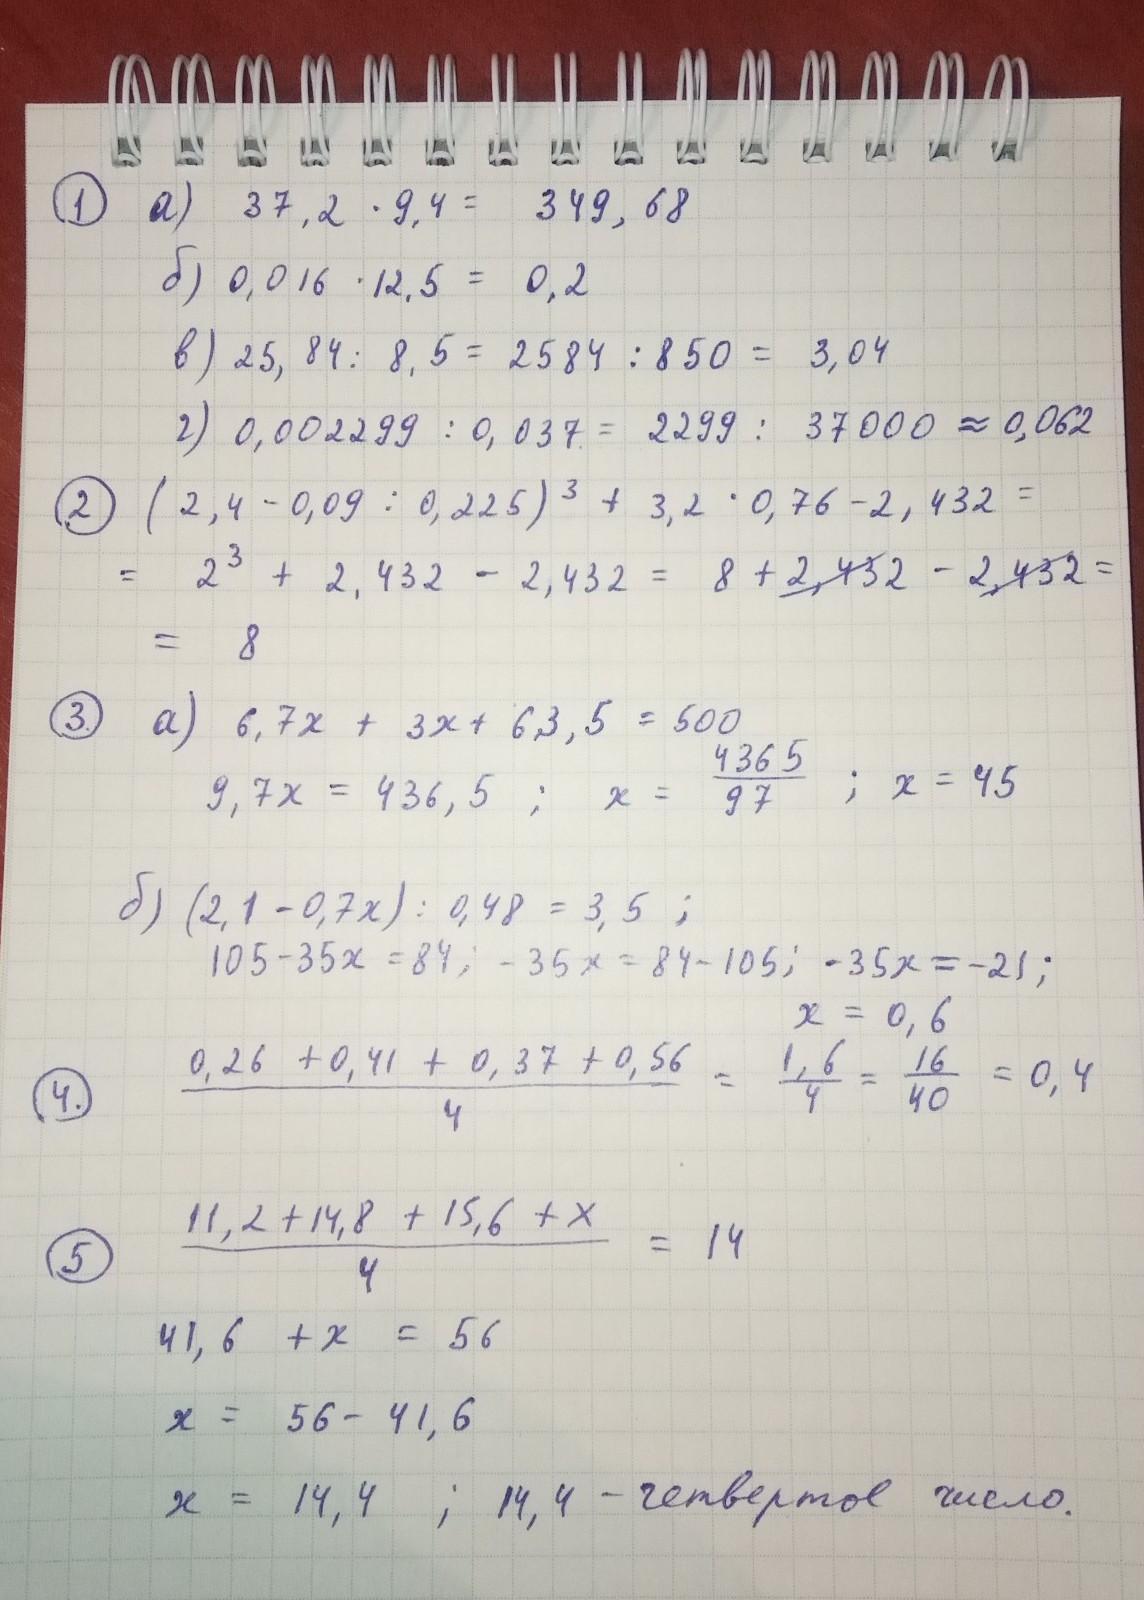 1 а) 37,2 · 9,4 = 349,68
б) 0,016 · 12,5 = 0,2
в) 25,84 : 8,5 = 2584 : 850 = 3,04
г) 0,002299 : 0,037 = 2299 : 37000 ≈ 0,062
2 (2,4 - 0,09 : 0,225)³ + 3,2 · 0,76 - 2,432 =
= 2³ + 2,432 - 2,432 = 8 + 2,432 - 2,432 =
= 8
3. а) 6,7x + 3x + 63,5 = 500
9,7x = 436,5 ; x = 4365/97 ; x = 45
б) (2,1 - 0,7x) : 0,48 = 3,5 ;
105 - 35x = 84; - 35x = 84 - 105; - 35x = -21;
x = 0,6
4. (0,26 + 0,41 + 0,37 + 0,56)/4 = 1,6/4 = 16/40 = 0,4
5 (11,2 + 14,8 + 15,6 + x)/4 = 14
41,6 + x = 56
x = 56 - 41,6
x = 14,4 ; 14,4 - четвертое число.